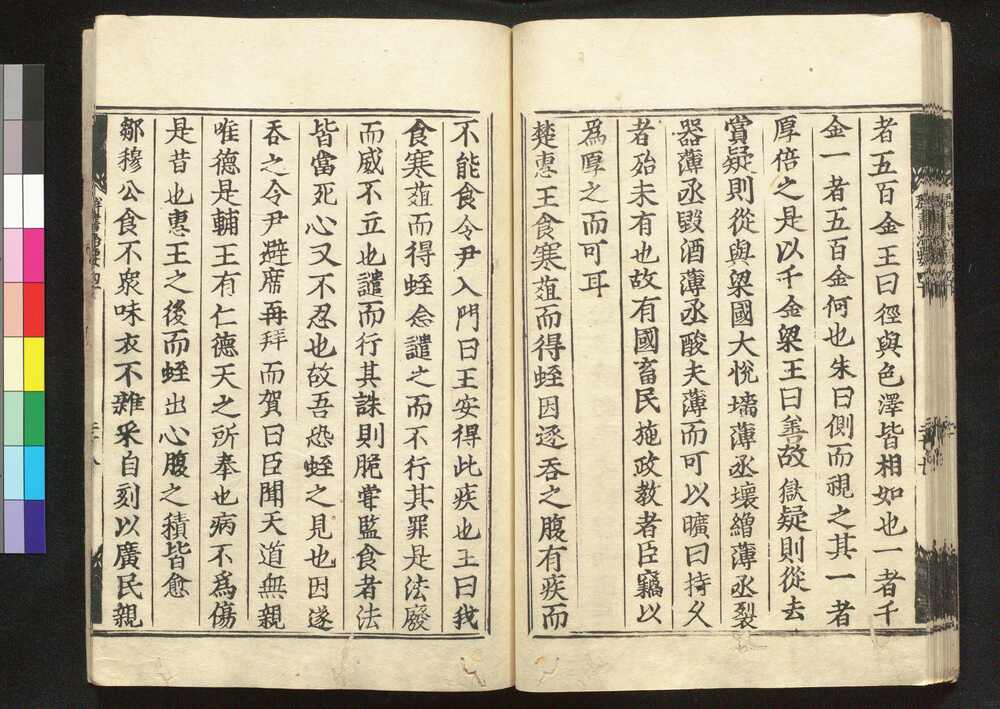 者五百金王曰徑與色澤皆相如也一者千
金一者五百金何也朱曰側而視之其一者
厚倍之是以千金梁王曰善故獄疑則從去
賞疑則從與梁國大悅墻薄亟壞繒薄亟裂
器薄亟毀酒薄亟酸夫薄而可以曠日持久
者殆未有也故有國畜民施政教者臣竊以
為厚之而可耳
楚惠王食寒葅而得蛭因遂吞之腹有疾而
不能食令尹入門曰王安得此疾也王曰我
食寒葅而得蛭念譴之而不行其罪是法廢
而威不立也譴而行其誅則庖宰監食者法
皆當死心又不忍也故吾恐蛭之見也因遂
吞之令尹避席再拜而賀曰臣聞天道無親
唯德是輔王有仁德天之所奉也病不為傷
是昔也惠王之後而蛭出心腹之積皆愈
鄒穆公食不衆味衣不雜采自刻以廣民親